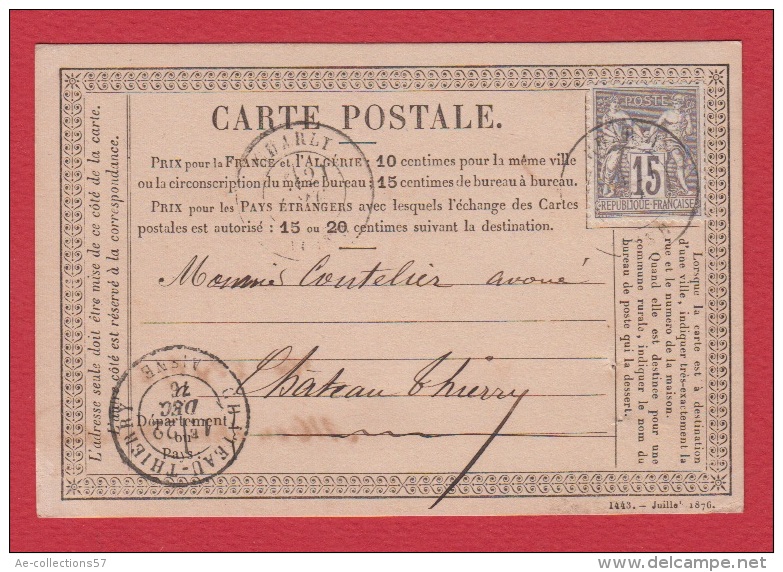 CARTE POSTALE.
POSTE
15
RÉPUBLIQUE FRANÇAISE
PRIX pour la FRANCE et l'ALGÉRIE : 10 centimes pour la même ville
ou la circonscription du même bureau ; 15 centimes de bureau à bureau.
PRIX pour les PAYS ÉTRANGERS avec lesquels l'échange des Cartes
postales est autorisé : 15 ou 20 centimes suivant la destination.
Monsieur Coutelier avoué
Château Thierry
Département
ou
Pays
CHATEAU-THIERRY
DEC
76
AISNE
L'adresse seule doit être mise de ce côté de la carte.
L'autre côté est réservé à la correspondance.
Lorsque la carte est à destination
d'une ville, indiquer très-exactement la
rue et le numero de la maison.
Quand elle est destinée pour une
commune rurale, indiquer le nom du
bureau de poste qui la dessert.
1443. — Juillet 1876.
Ae-collections57
delcampe.net